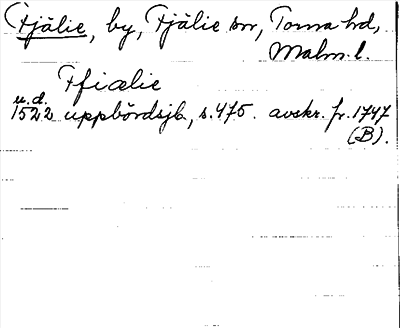 Fjälie, by, Fjälie sn, Torna hd,
Malm. l.
Ffiælie
u.d.
1522 uppbördsjb, s. 475. avskr. fr. 1747
(B).